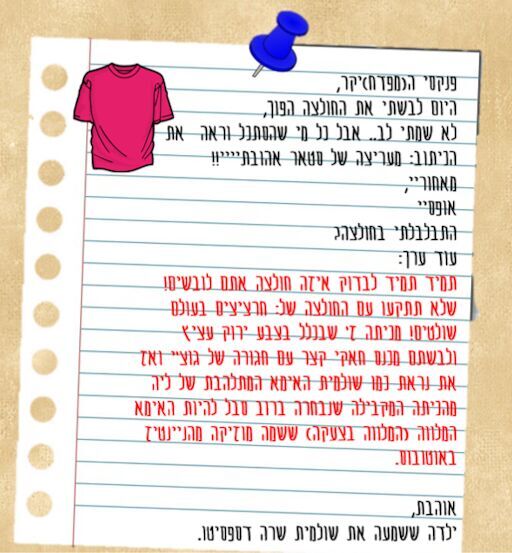 פנקסי ה(מפדח)יקר,
היום לבשתי את החולצה הפוך,
לא שמתי לב.. אבל כל מי שהסתכל וראה את
הכיתוב: מעריצה של סטאר אהובתיייי!!
מאחוריי,
אופסיי
התבלבלתי בחולצה.
עוד ערך:
תמיד תמיד לבדוק איזה חולצה אתם לובשים!
שלא תתקעו עם החולצה של: חרציצים בעולם
שולטים! מכיתה ז' שבכלל בצבע ירוק עציץ
ולבשתם מכנס חאקי קצר עם חגורה של גוצ'י ואז
את נראת כמו שולמית האימא המתלהבת של ליה
מהכיתה המקבילה שנבחרה ברוב סבל להיות האימא
המלווה (המלווה בצעקה) ששמה מוזיקה מהניינטיז
באוטובוס.
אוהבת,
ילדה ששמעה את שולמית שרה דספסיטו.